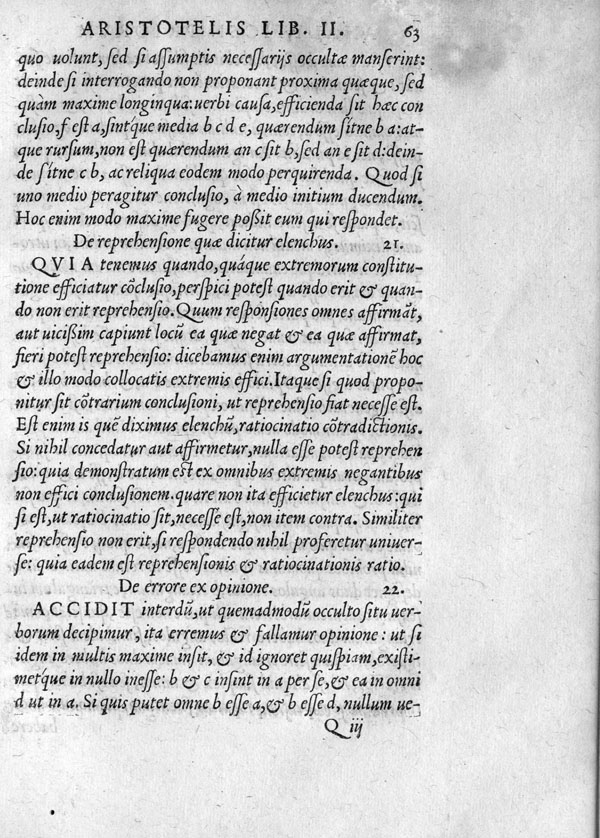 ARISTOTELIS LIB. II. 63
quo uolunt, sed si assumptis necessarijs occultæ manserint:
deinde si interrogando non proponant proxima quæque, sed
quàm maxime longinqua: uerbi causa, efficienda sit hæc con
clusio, f est a, sintq́ue media b c d e, quærendum sítne b a: at-
que rursum, non est quærendum an c sit b, sed an e sit d: dein-
de sítne c b, ac reliqua eodem modo perquirenda. Quod si
uno medio peragitur conclusio, à medio initium ducendum.
Hoc enim modo maxime fugere poßit eum qui respondet.
De reprehensione quæ dicitur elenchus. 21.
QVIA tenemus quando, quáque extremorum constitu-
tione efficiatur cōclusio, perspici potest quando erit & quan-
do non erit reprehensio. Quum responsiones omnes affirmāt,
aut uicißim capiunt locū ea quæ negat & ea quæ affirmat,
fieri potest reprehensio: dicebamus enim argumentationē hoc
& illo modo collocatis extremis effici. Itaque si quod propo-
nitur sit cōtrarium conclusioni, ut reprehensio fiat necesse est.
Est enim is quē diximus elenchū, ratiocinatio cōtradictionis.
Si nihil concedatur aut affirmetur, nulla esse potest reprehen
sio: quia demonstratum est ex omnibus extremis negantibus
non effici conclusionem. quare non ita efficietur elenchus: qui
si est, ut ratiocinatio sit, necesse est, non item contra. Similiter
reprehensio non erit, si respondendo nihil proferetur uniuer-
se: quia eadem est reprehensionis & ratiocinationis ratio.
De errore ex opinione. 22.
ACCIDIT interdū, ut quemadmodū occulto situ uer-
borum decipimur, ita erremus & fallamur opinione: ut si
idem in multis maxime insit, & id ignoret quispiam, existi-
metq́ue in nullo inesse: b & c insint in a per se, & ea in omni
d ut in a. Si quis putet omne b esse a, & b esse d, nullum ue-
Q iij